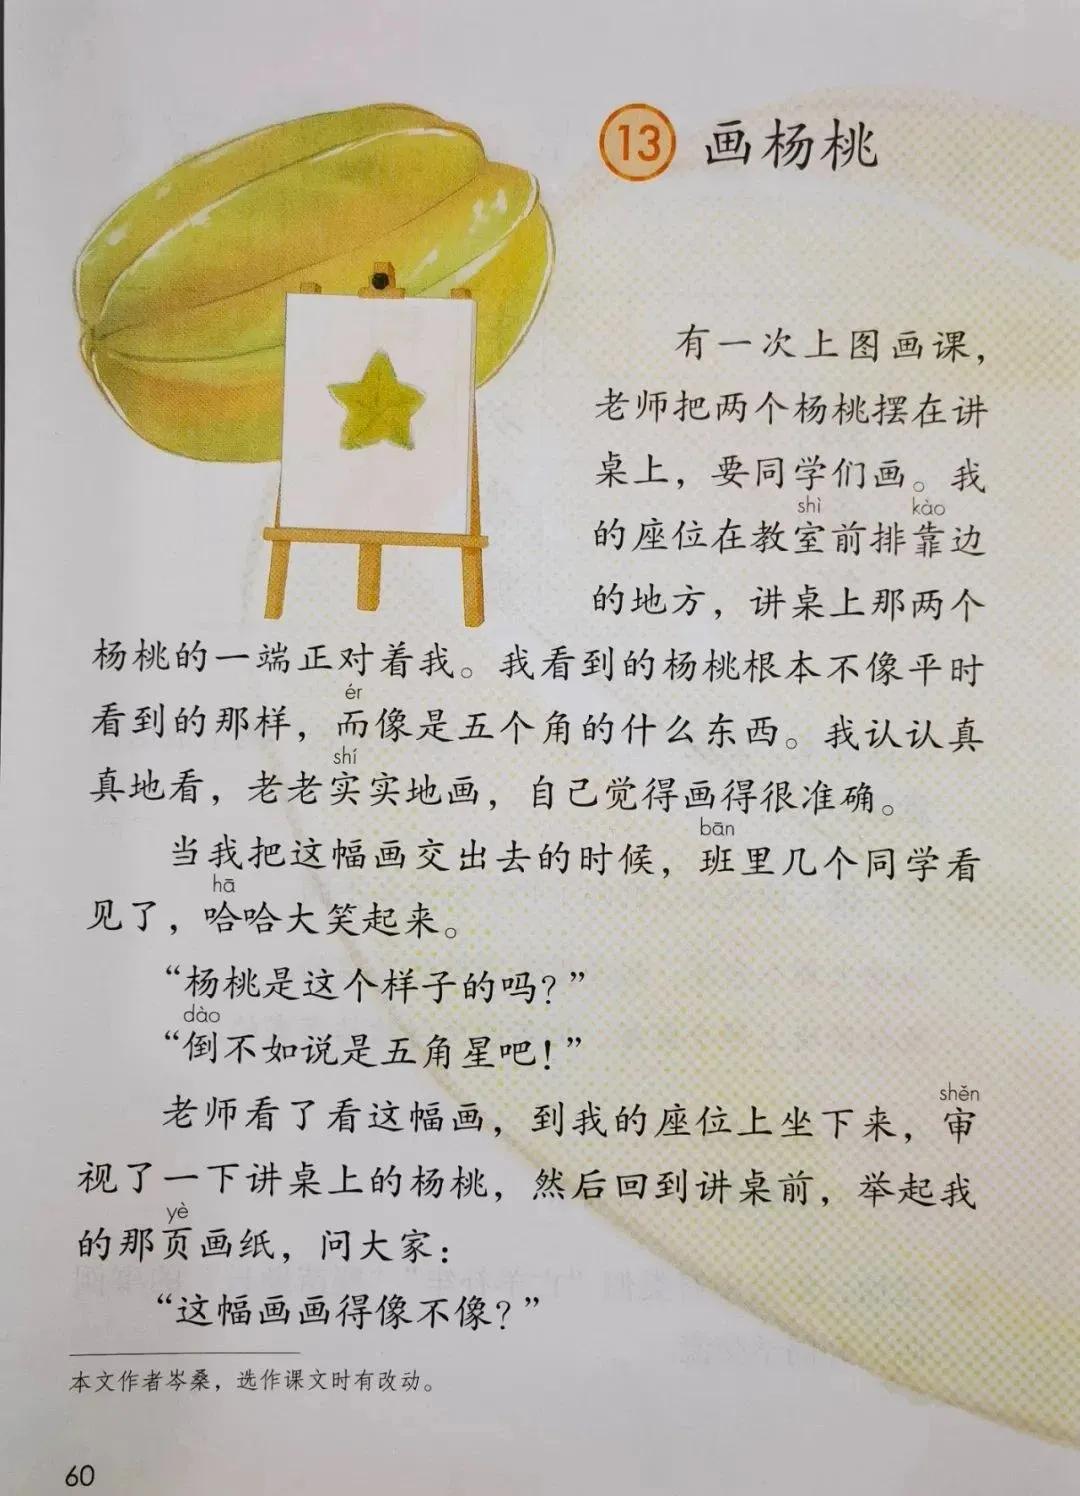 13 画杨桃
有一次上图画课，
老师把两个杨桃摆在讲
桌上，要同学们画。我
shì kào
的座位在教室前排靠边
的地方，讲桌上那两个
杨桃的一端正对着我。我看到的杨桃根本不像平时
ér
看到的那样，而像是五个角的什么东西。我认认真
shí
真地看，老老实实地画，自己觉得画得很准确。
bān
当我把这幅画交出去的时候，班里几个同学看
hā
见了，哈哈大笑起来。
“杨桃是这个样子的吗？”
dào
“倒不如说是五角星吧！”
shěn
老师看了看这幅画，到我的座位上坐下来，审
视了一下讲桌上的杨桃，然后回到讲桌前，举起我
yè
的那页画纸，问大家：
“这幅画画得像不像？”
本文作者岑桑，选作课文时有改动。
60